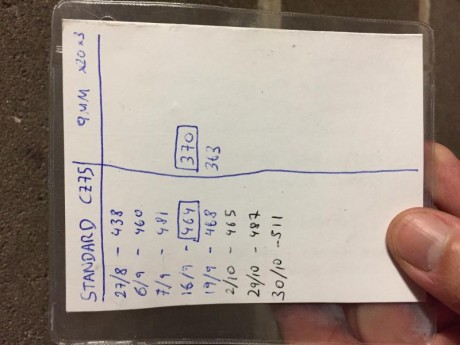 STANDARD CZ75 | 9.MM x20x3
27/8 - 438
6/9 - 460
7/9 - 481
16/9 - 464 370
19/9 - 468 363
2/10 - 465
29/10 - 487
30/10 - 511